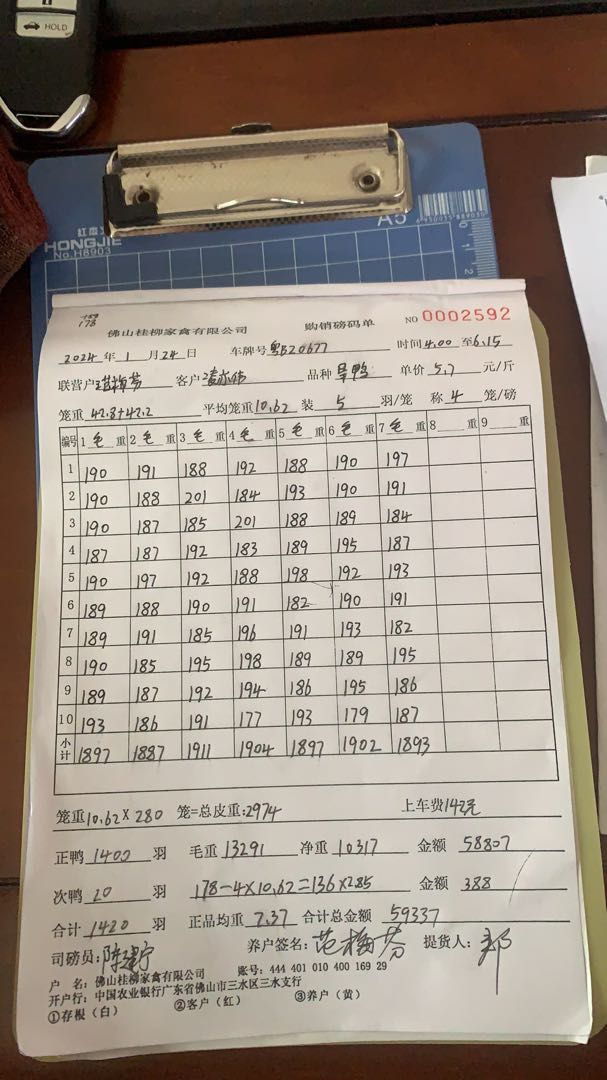 HOLD
A5
6950015889030
红杰
HONGJIE
No.H8903
0
1
2
178
佛山桂柳家禽有限公司 购销磅码单 NO 0002592
2024年 1 月 24 日 车牌号 粤B20677 时间 4.00 至 6.15
联营户 范梅芬 客户 品种 单价 5.7 元/斤
笼重 42.8+42.2 平均笼重 10.62 装 5 羽/笼 称 4 笼/磅
编号 1 毛 重 2 毛 重 3 毛 重 4 毛 重 5 毛 重 6 毛 重 7 毛 重 8 重 9 重
1 190 191 188 192 188 190 197
2 190 188 201 184 193 190 191
3 190 187 185 201 188 189 184
4 187 187 192 183 189 195 187
5 190 197 192 188 198 192 193
6 189 188 190 191 182 190 191
7 189 191 185 196 191 193 182
8 190 185 195 198 189 189 195
9 189 187 192 194 186 195 186
10 193 186 191 177 193 179 187
小计 1897 1887 1911 1904 1897 1902 1893
笼重 10.62 X 280 笼=总皮重:2974 上车费142元
正鸭 1400 羽 毛重 13291 净重 10317 金额 58807
次鸭 20 羽 178-4X10.62=136X2.85 金额 388
合计 1420 羽 正品均重 7.37 合计总金额 59337
司磅员: 养户签名: 范梅芬 提货人: 郑
户 名: 佛山桂柳家禽有限公司 账号: 444 401 010 400 169 29
开户行: 中国农业银行广东省佛山市三水区三水支行
①存根（白） ②客户（红） ③养户（黄）